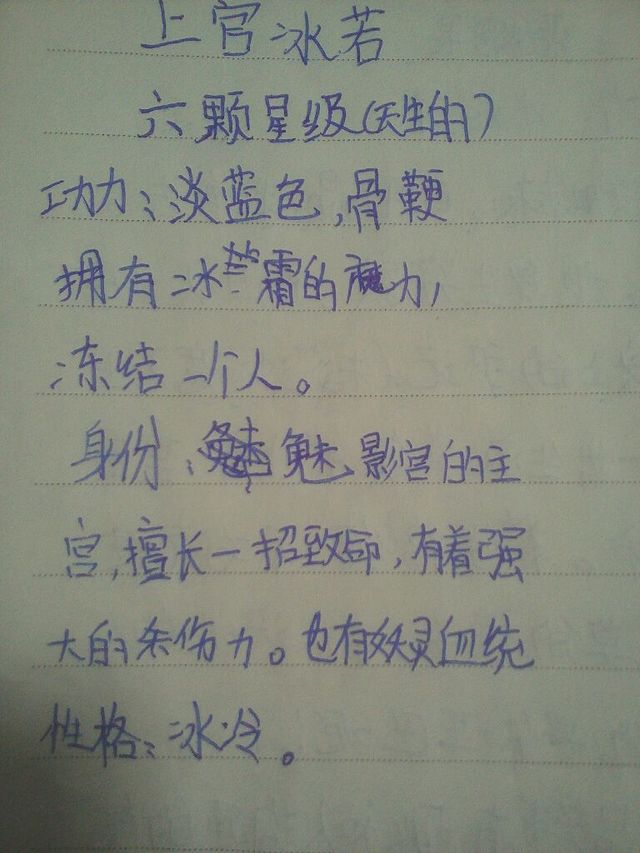 上官冰若
六颗星级(天生的)
功力:淡蓝色,骨鞭
拥有冰霜的魔力,
冻结一个人。
身份:魅影宫的主
宫,擅长一招致命,有着强
大的杀伤力。也有妖灵血统
性格:冰冷。